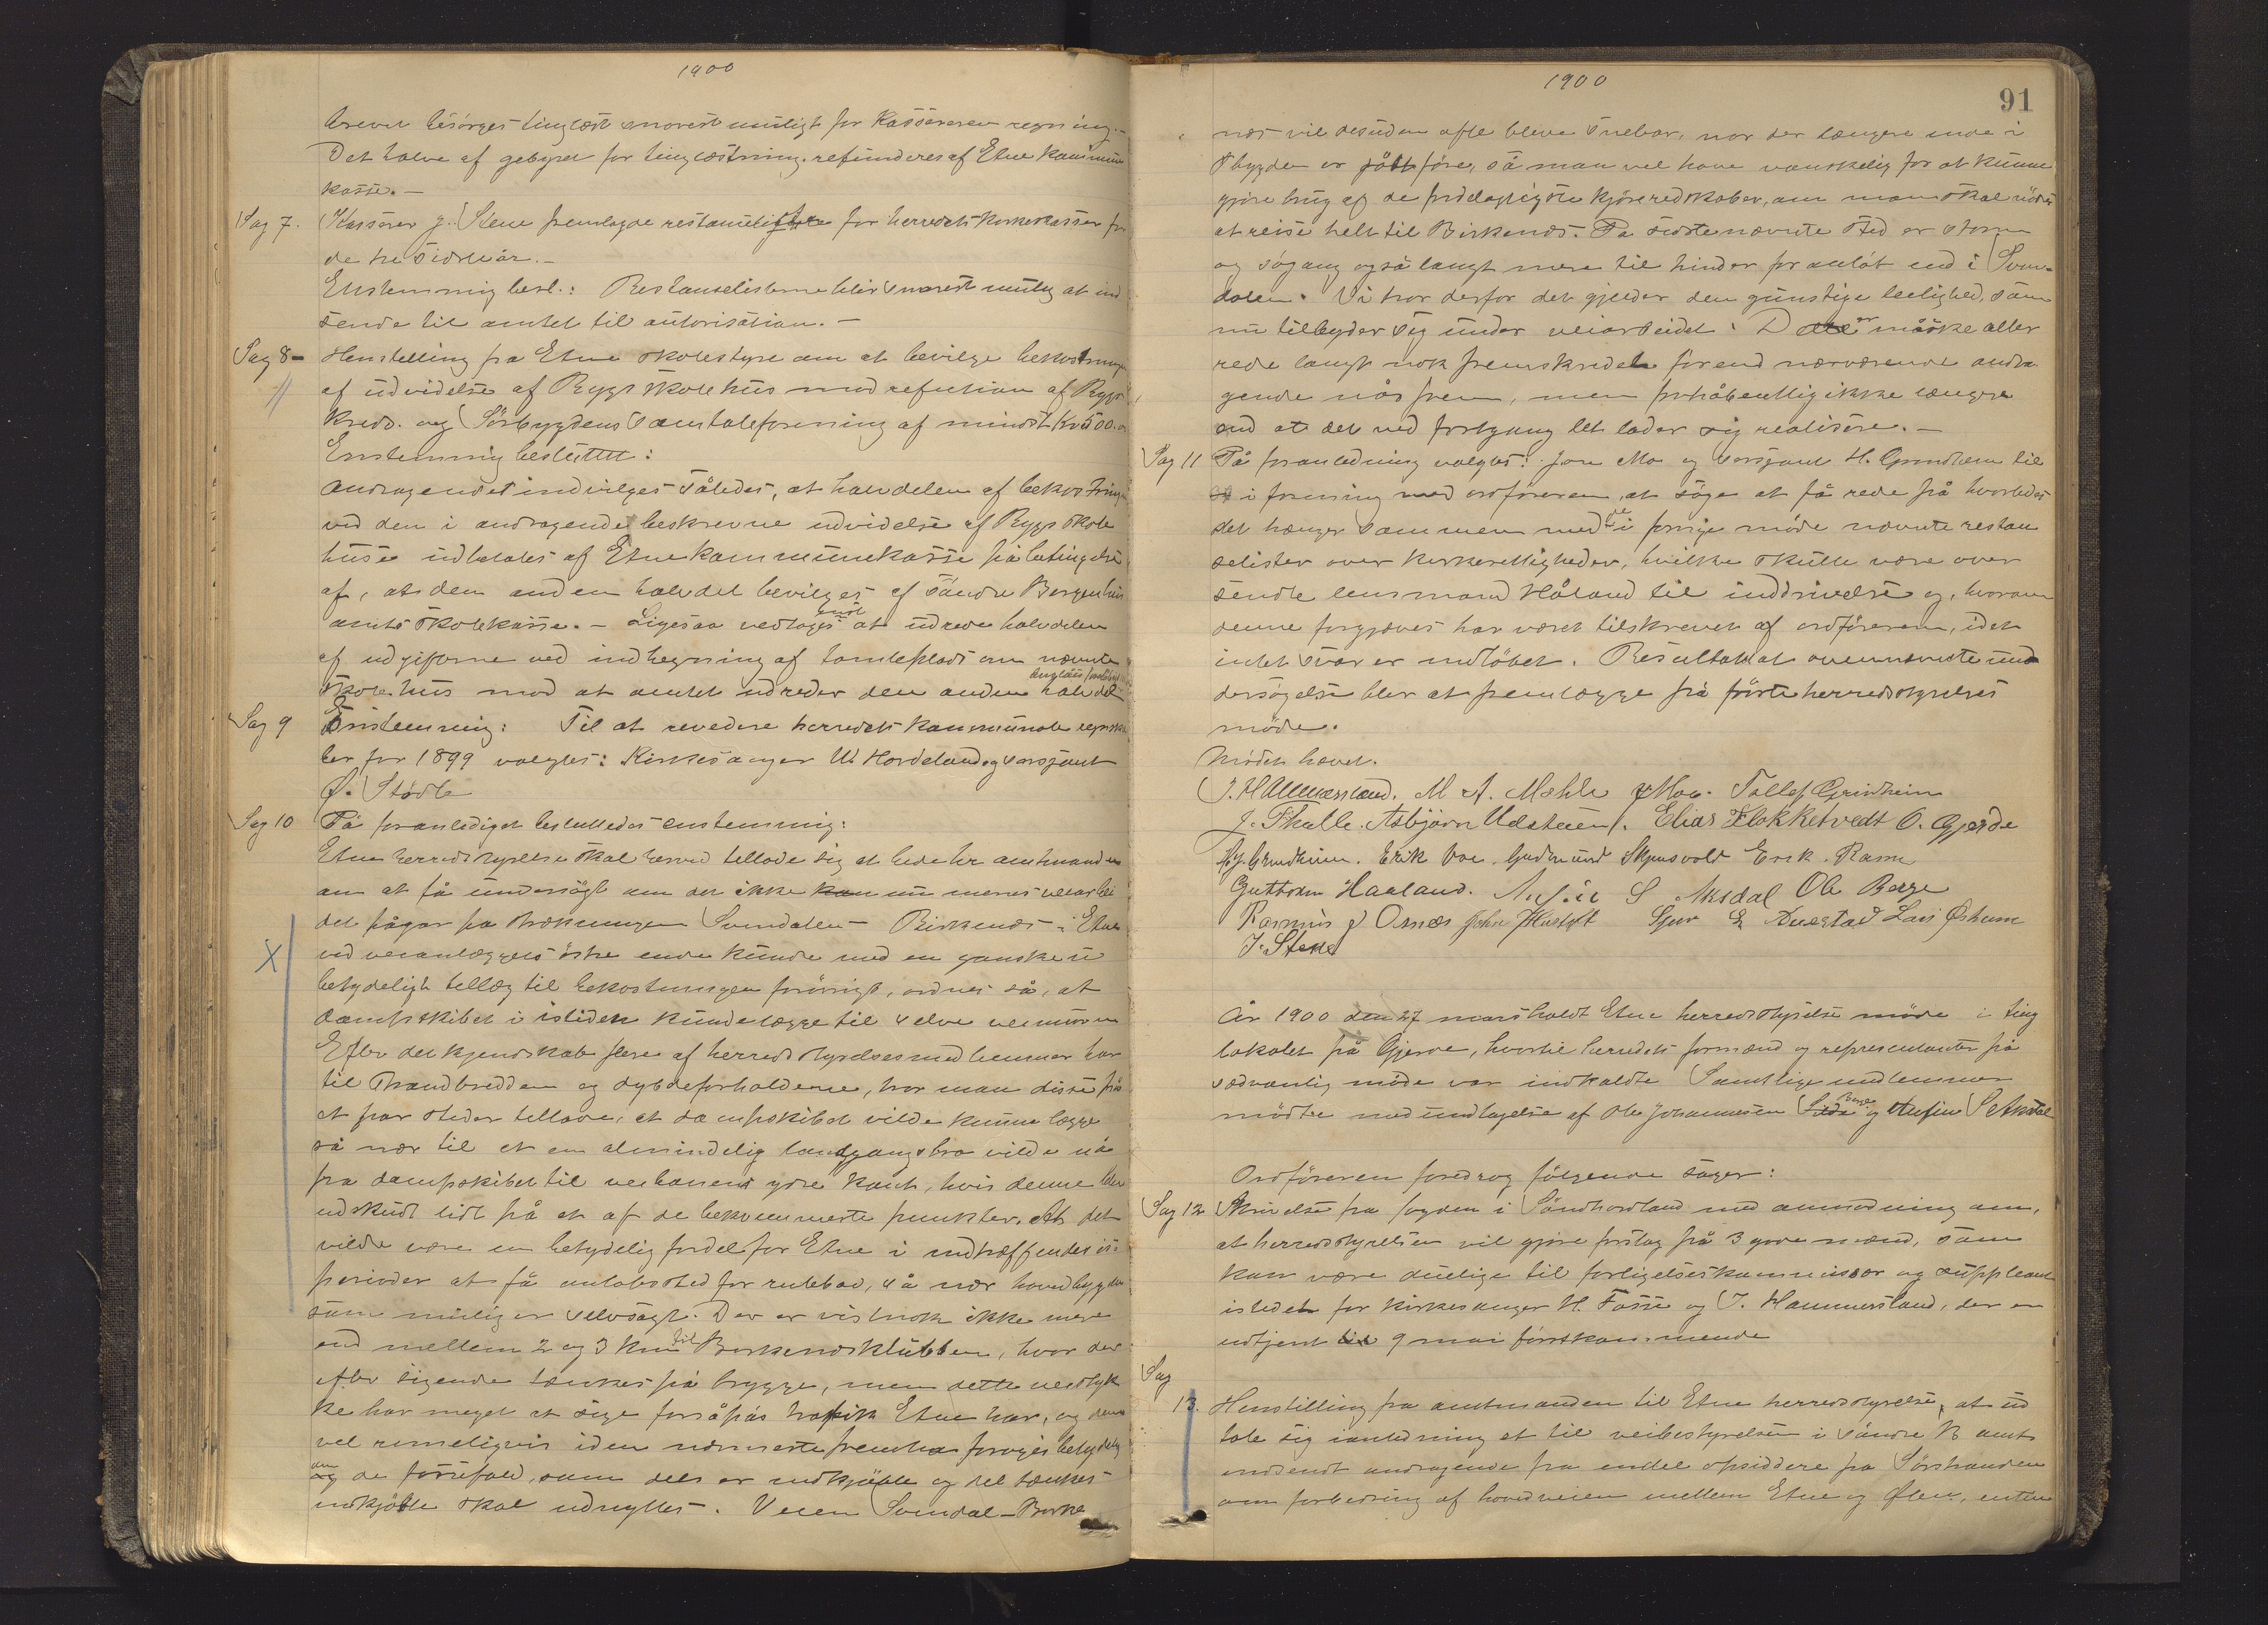 1900
brevet besörges tinglæst snarest muligt for Kassererens regning.-
Det halve af gebyret for tinglæsning refunderes af Etne kommune
kasse.-
Sag 7. Kasserer J. Stene fremlagde restanselister for herredets kirkekasser for
de tre sidste år.-
Enstemmig besl.: Restanselisterne blir snarest mulig at ind
sende til amtet til autorisation.-
Sag 8- Henstilling fra Etne skolestyre om at bevilge bekostningen
af udvidelse af Rygs skolehus mod refution af Rygs
kreds og Sörbygdens samtaleforening af mindst Kr 500.00
Enstemmig besluttet:
Andragendet indvilges således, at halvdelen af bekostningen
ved den i andragende beskrevne udvidelse af Rygs skole
huse udbetales af Etne kommunekasse på betingelse
af, at den anden halvdel bevilges af söndre Bergenhus
amts skolekasse.- Ligesaa vedtoges enst at udrede halvdelen
af udgifterne ved indhegning af tomteplads om nævnte
skolehus mod at amtet udreder den anden halvdel
Sag 9 Enstemmig: Til at revedere herredets kommunale regnska
ber for 1899 valgtes: Kirkesanger M. Hordeland og sersjant
Ø. Stödle
Sag 10 På foranlediget besluttedes enstemmig:
Etne herredsstyrelse skal herved tillade sig at bede hr amtmanden
om at få undersögt om der ikke nu menes veiarbei
det pågår fra strækningen Svendalen - Birkenes i Etne
ved veianlæggets östre ende kunde med en ganske u
betydeligt tillæg til bekostningen forövrigt, ordnes så, at
dampskibet i istiden kunde lægge til ved veimuren
Efter det kjendskab flere af herredsstyrelsesmedlemmer har
til strandbredden og dybdeforholdene, tror man disse på
et par steder tillade, at dampskibet vilde kunne lægge
så nær til at en almindelig landgangsbro vilde nå
fra dampskibet til veibanens ydre kant, hvis denne blev
udskudt lidt på et af de bekvemmeste punkter. At det
vilde være en betydelig fordel for Etne i indtræffendes is-
perioder at få anlöbssted for rutebåd, så nær hovedbygden
som mulig er selvsagt. Der er vistnok ikke mere
end mellem 2 og 3 km til Birkenesklubben, hvor der
efter sigende tænkes på brygge, men dette veistyk
ke har meget at sige forsåpas trafik Etne har, og den
vel rimeligvis i den nærmeste fremtid foröges betydelig
om de fossefald, som dels er indkjöbte og del tænkes
indkjöbte skal udnyttes. Veien Svendal-Birke
1900
91
næs vil desuden ofte bleve snebar, nor der længere inde i
bygden er godt före, så man vel have vanskelig for at kunne
gjöre brug af de fordelagtigste kjöreredskaber, om man skal nödes
at reise helt til Birkenæs. På sidste nævnte sted er storm
og sögang også langt mere til hinder for anlöb end i Sven-
dalen. Vi tror derfor det gjælder den gunstige leilighed, som
nu tilbyder sig under veiarbeidet. Dette er måske aller
rede langt nok fremskredet förend nærværende andra
gende nås frem, men forhåbentlig ikke længere
end at det ved fortgang let lader sig realisere.-
Sag 11 På foranledning valgtes: Jon Mo og sersjant H. Grindheim til
i forening med ordföreren, at söge at få rede på hvorledes
det hænger sammen med de i forrige möde nævnte restan
selister over kirkerettigheder, hvilke skulle være over
sendte lensmand Håland til inddrivelse og, hvorom
denne forgjæves har været tilskrevet af ordföreren, idet
intet svar er indlöbet. Resultatet af ovennævnte und
dersögelse blev at fremlægge på förste herredsstyrelses
möde.
Mödet hævet.
J. Hammersland. M A. Mæhle J Mo. Tollef Grindheim
J. Thalle. Asbjörn Udsteen. Elias Flokketvedt O. Gjerde
H. Grindheim. Erik Voe. Gudmund Skjensvold Erik. Ramn
Guttorm Haaland. Anfin S Aksdal Ole Berge
Rasmus J Osnes John Hustoft Sjur E Auestad Lars Öxheim
J. Stene
År 1900 den 27 mars holdt Etne herredsstyrelse möde i ting
lokalet på Gjerde, hvortil herredets formænd og representanter på
sedvanlig möde var indkaldte Samtlige medlemmer
mödte med undtagelse af Ole Johannesen Berge og Anfin S Aksdal
Ordföreren foredrog fölgende sager:
Sag 12 Skrivelse fra fogden i Söndhordland med anmodning om,
at herredsstyrelsen vil gjöre forslag på 3 gode mænd, som
kan være duelige til forligelseskommissær og suppleant
istedet for kirkesanger H. Fosse og J. Hammersland, der er
udtjent til 9 mai förstkommende
Sag
13. Henstilling fra amtmanden til Etne herredsstyrelse, at ud
tale sig i anledning et til veibestyrelsen i söndre B amt
indsendt andragende fra endel opsiddere fra Sörstranden
om forbedring af hovedveien mellem Etne og Ölen, enten